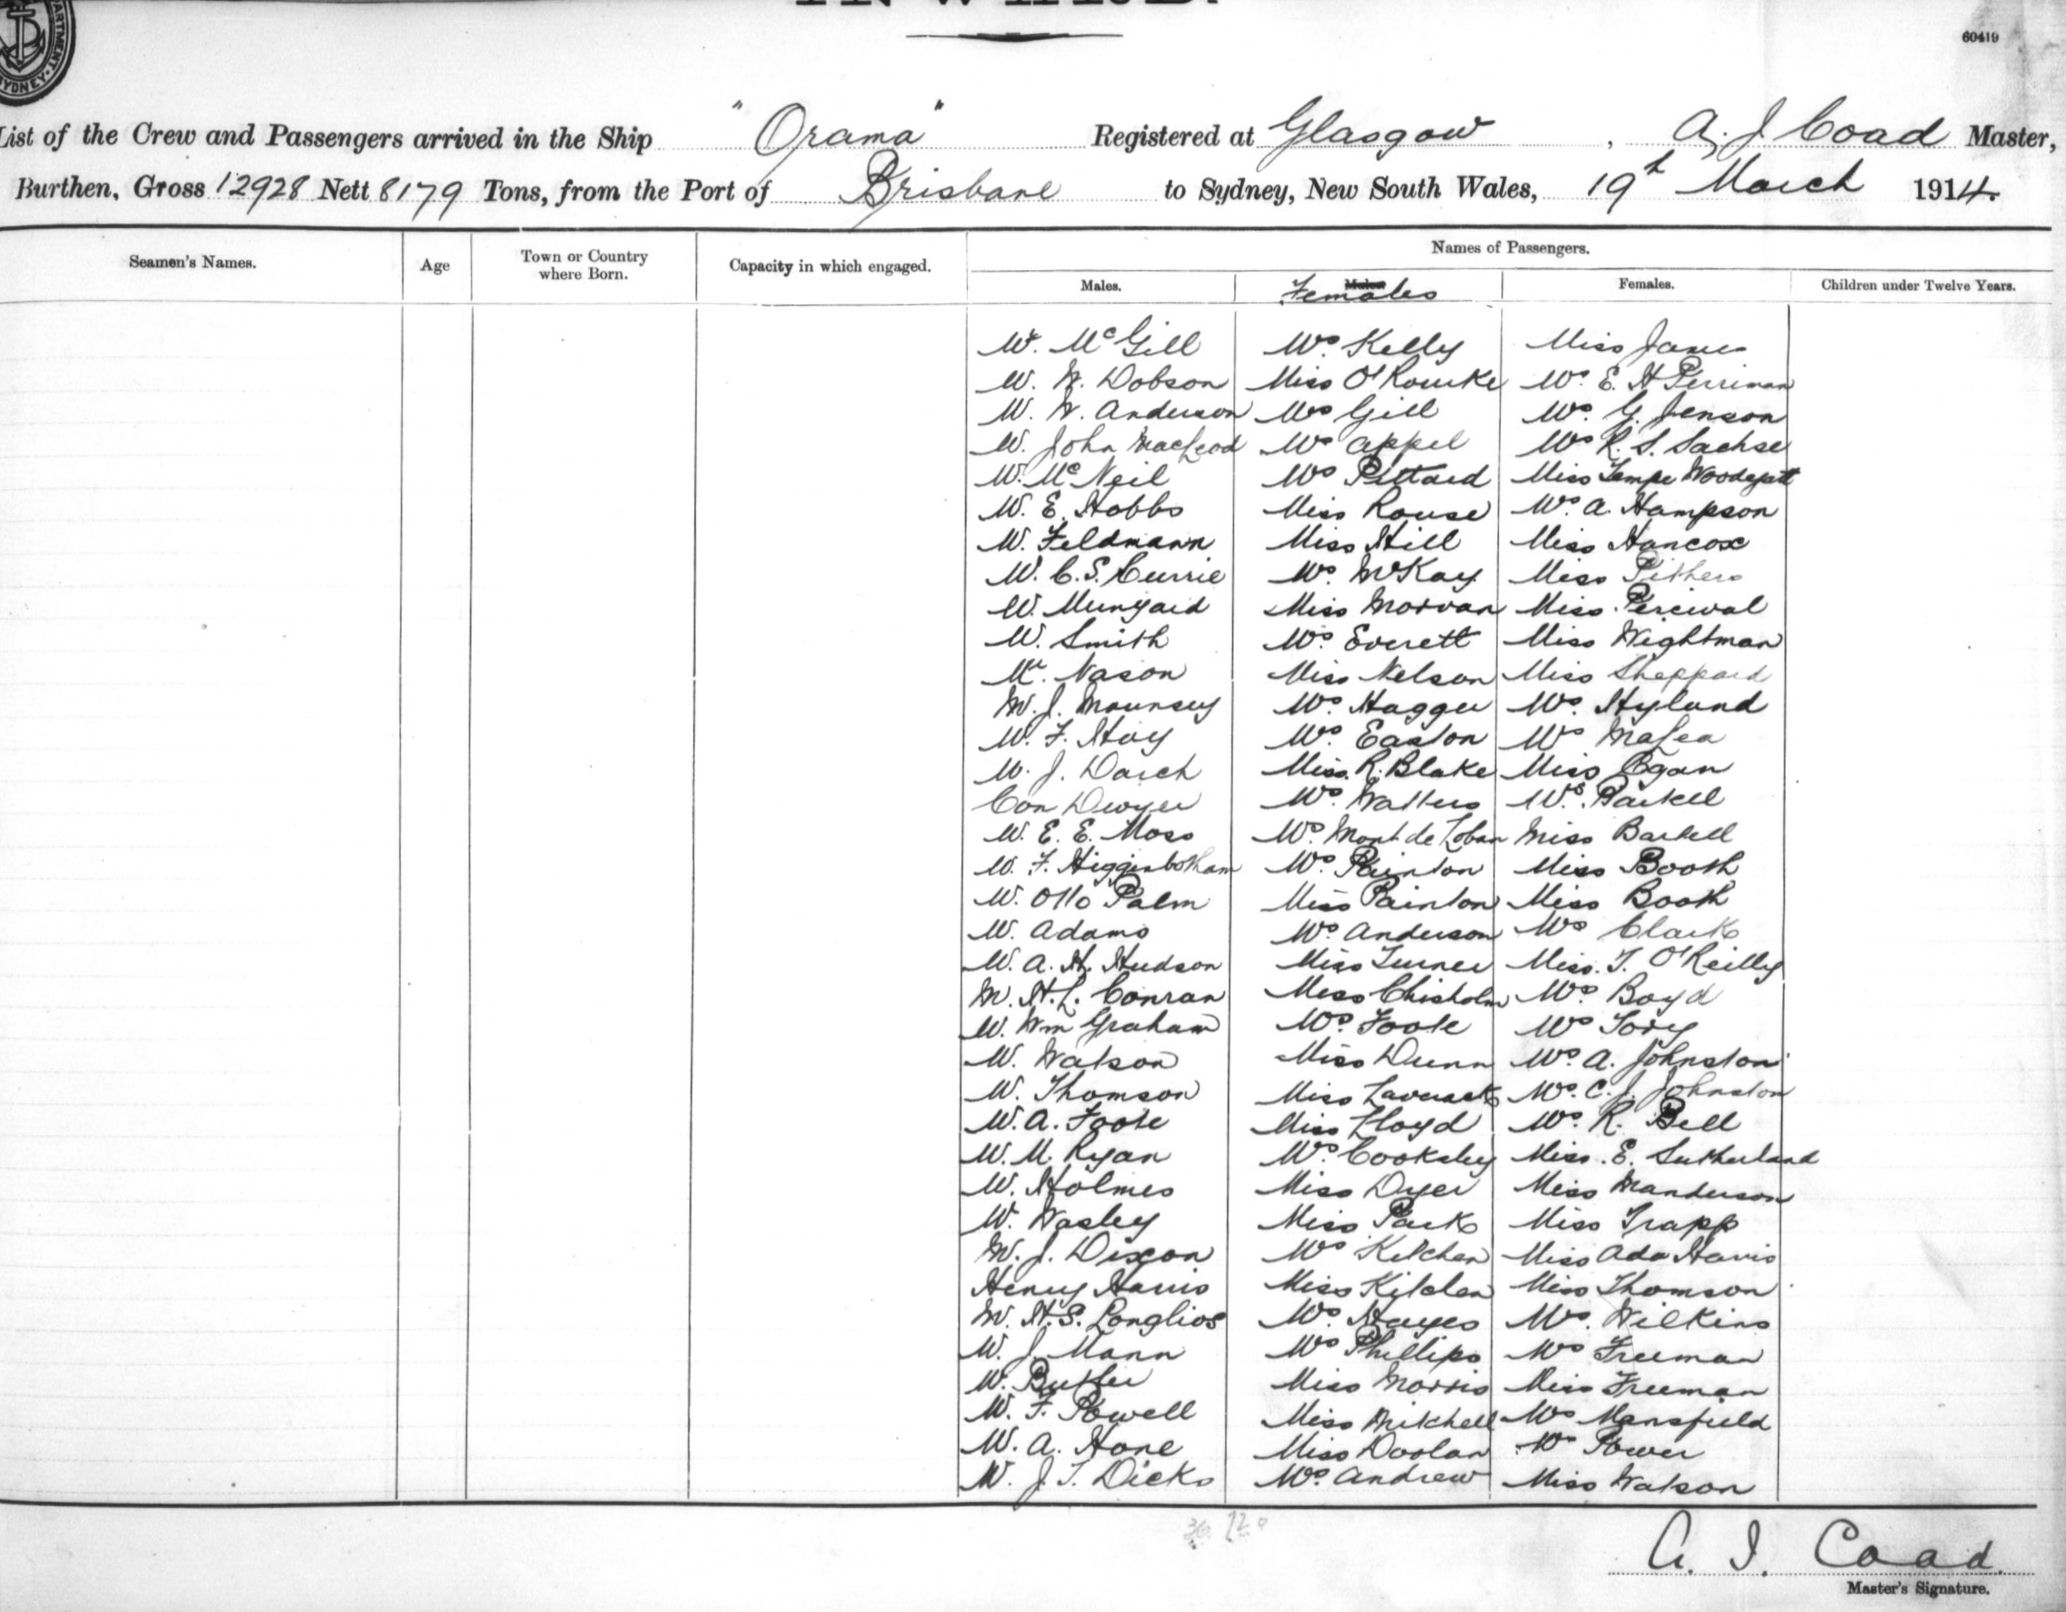 INWARD.
60419
SYDNEY
List of the Crew and Passengers arrived in the Ship "Orama" Registered at Glasgow, A. J Coad Master,
Burthen, Gross 12928 Nett 8179 Tons, from the Port of Brisbane to Sydney, New South Wales, 19th March 1914.
Names of Passengers.
Seamen's Names. Age Town or Country where Born. Capacity in which engaged. Males. Females Females. Children under Twelve Years.
Mr. McGill Mrs Kelly Miss James
Mr. W. Dobson Miss O'Rourke Mrs. E. H Perriman
Mr. W. Anderson Mrs Gill Mrs. G. Jenson
Mr. John MacLeod Mrs Appel Mrs R. S. Sachse
Mr. McNeil Mrs Pittard Miss Tempe Woodgatt
Mr. E. Hobbs Miss Rouse Mrs. A. Hampson
Mr. Feldmann Miss Hill Miss Hancox
Mr. C. S. Currie Mrs. McKay Miss Pithers
Mr. Munyard Miss Morvan Miss Percival
Mr. Smith Mrs. Everett Miss Wightman
Mr. Nason Miss Nelson Miss Sheppard
Mr. J. Mounsey Mrs. Hagger Mrs. Hyland
Mr. F. Hoy Mrs. Easton Mrs
Mr. J. Darch Miss. R. Blake Miss Egan
Con Dwyer Mrs. Watters Mrs. Bartell
Mr. E. E. Moss Mrs. Miss Bartell
Mr. F. Higginbotham Mrs. Painton Miss Booth
Mr. Otto Palm Miss Painton Miss Booth
Mr. Adams Mrs Anderson Mrs Clark
Mr. A. H. Hudson Miss Turner Miss. T. O'Reilly
Mr. H. L. Conran Miss Chisholm Mrs. Boyd
Mr. Wm Graham Mrs. Foote Mrs Tory
Mr. Watson Miss Dunn Mrs A. Johnston
Mr. Thomson Miss Laverack Mrs. C. J. Johnston
Mr. A. Foote Miss Lloyd Mrs. R. Bell
Mr. M. Ryan Mrs Cooksley Miss. E. Sutherland
Mr. Holmes Miss Dyer Miss Manderson
Mr. Wasley Miss Park Miss Trapp
Mr. J. Dixon Mrs Kitchen Miss Ada Harris
Henry Harris Miss Kitchen Miss Thomson
Mr. H. S. Langlios Mrs. Hayes Mrs. Wilkins
Mr. J. Mann Mrs Phillips Mrs Freeman
Mr. Butler Miss Morris Miss Freeman
Mr. F. Powell Miss Mitchell Mrs Mansfield
Mr. A. Hone Miss Doolan Mrs Power
Mr. J. T. Dicks Mrs. Andrew Miss Watson
A. J. Coad.
Master's Signature.